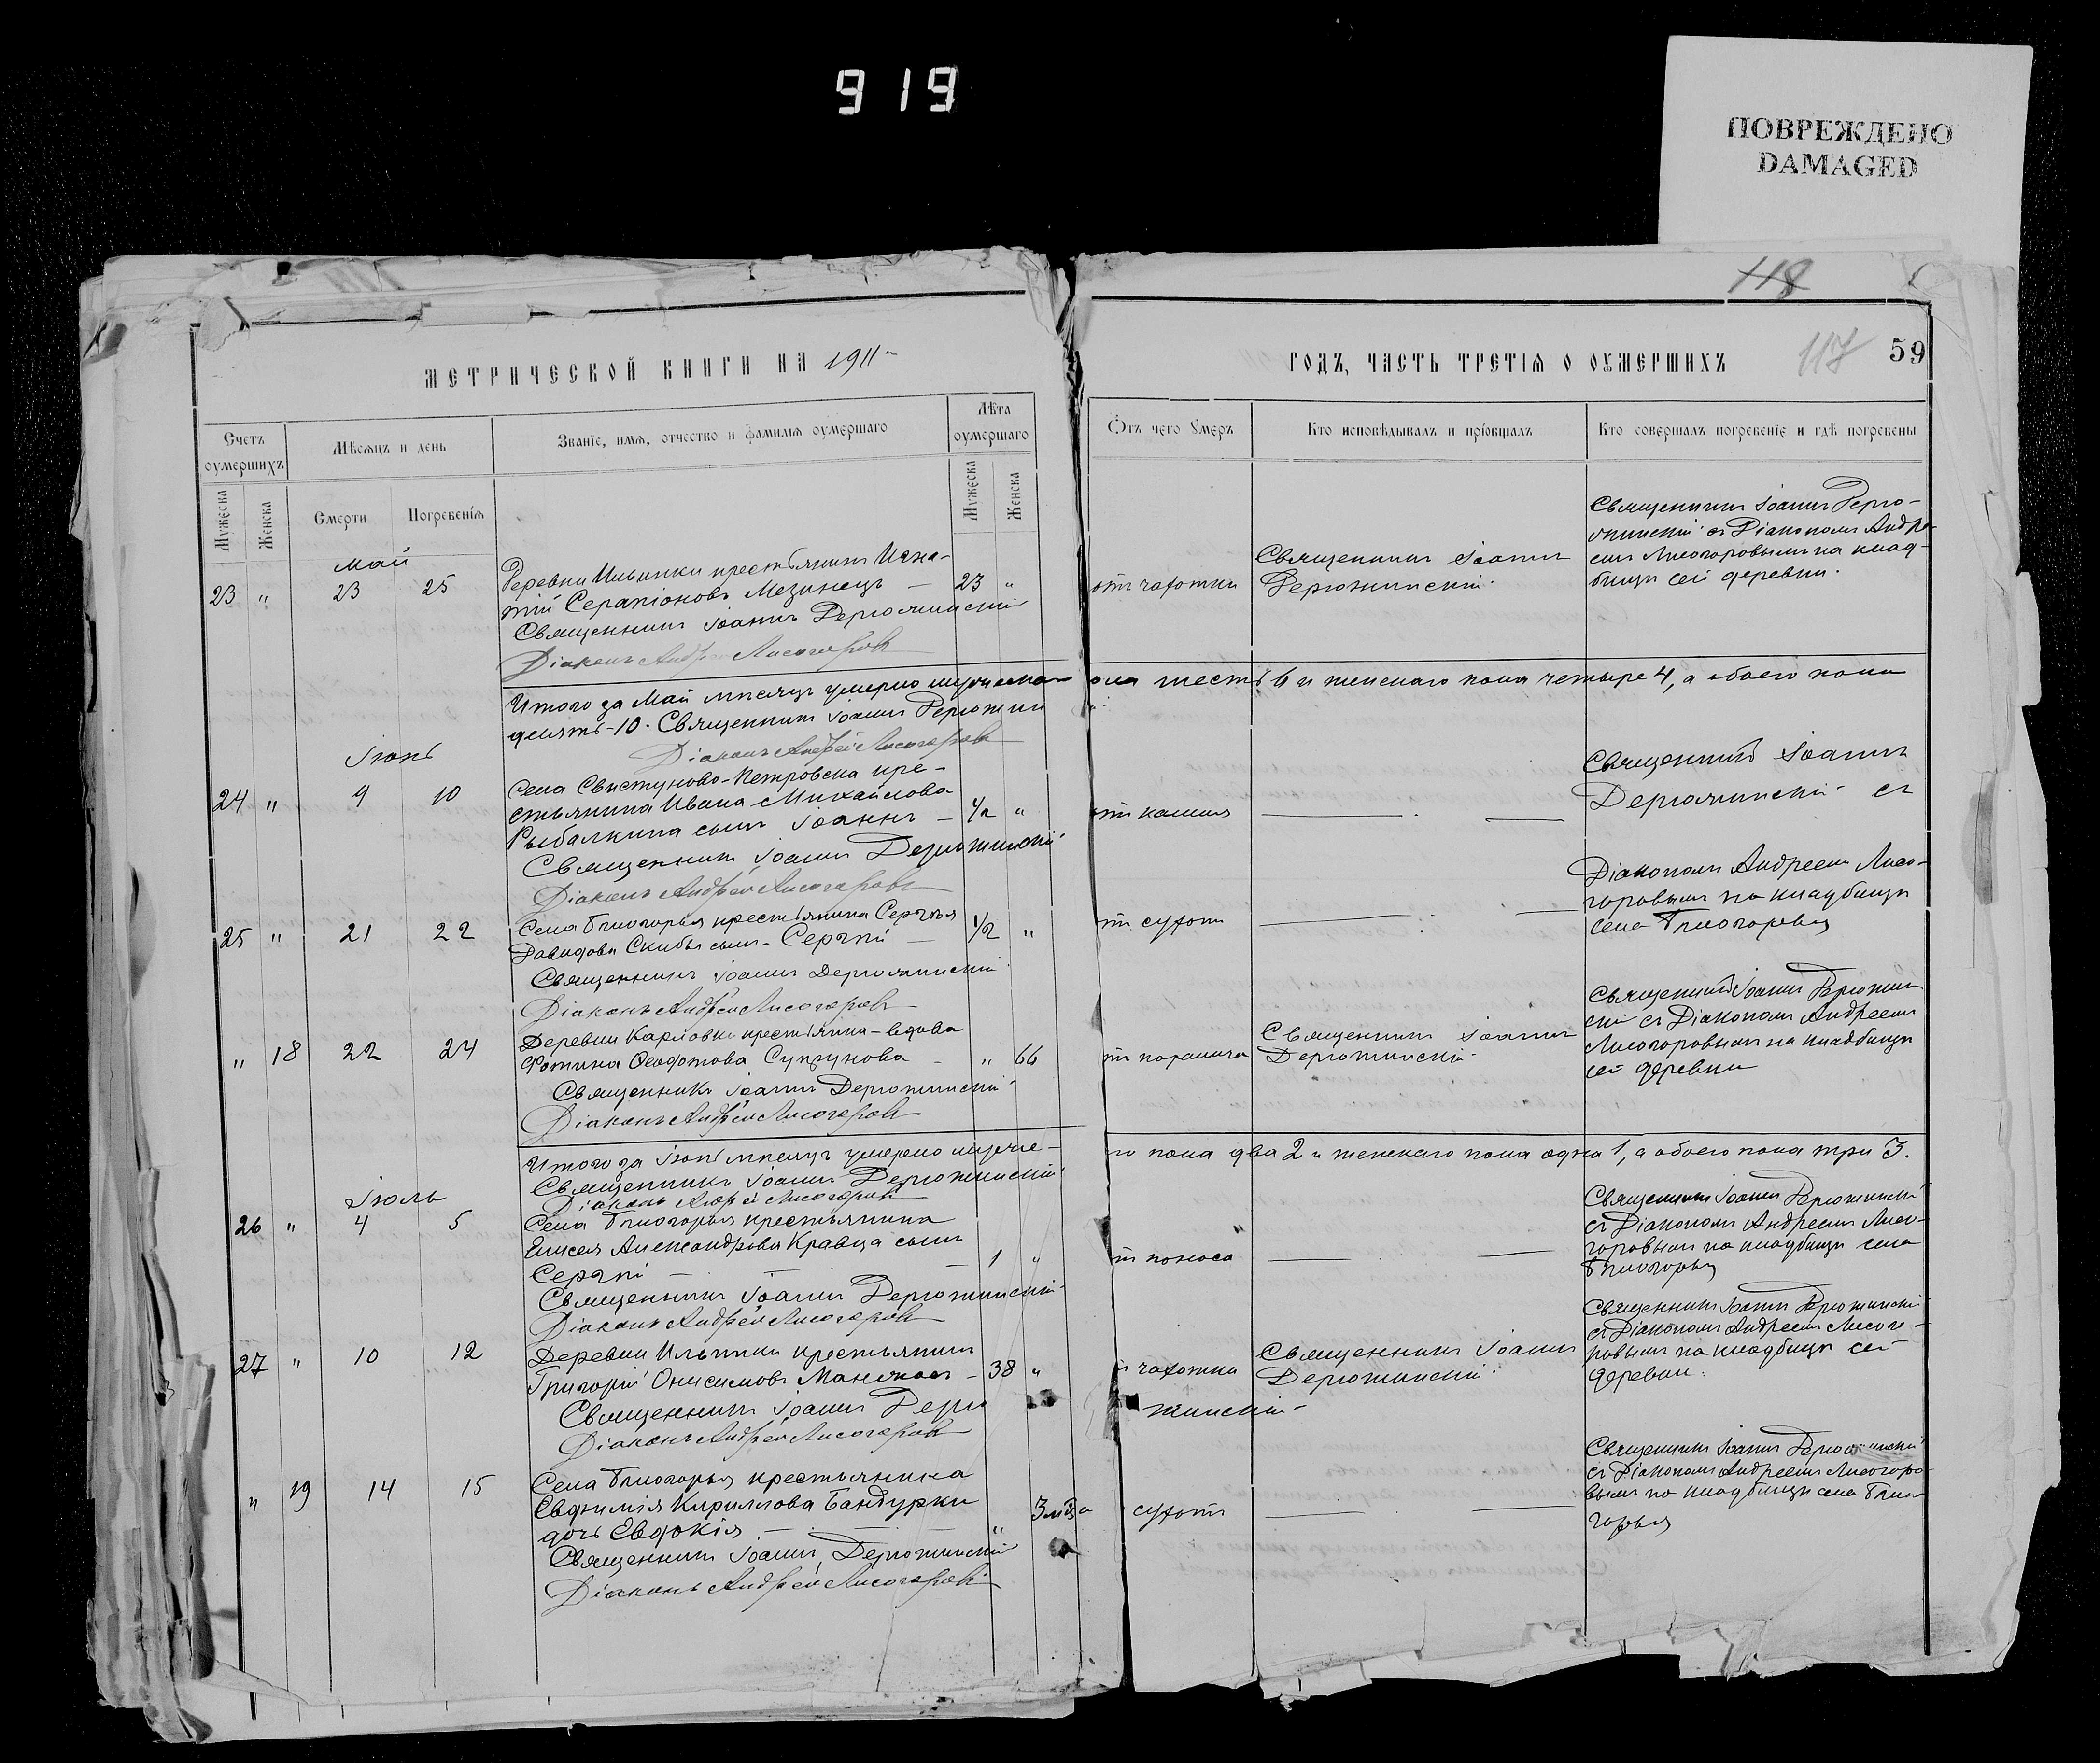 919
ПОВРЕЖДЕНО
DAMAGED
118
117
59
МЕТРИЧЕСКОЙ КНИГИ НА 1911
ГОДЪ, ЧАСТЬ ТРЕТІЯ О ОУМЕРШИХЪ
Счетъ оумершихъ
Мѣсяцъ и день
Званіе, имя, отчество и фамилія оумершаго
Лѣта оумершаго
Отъ чего Умеръ
Кто исповѣдывалъ и пріобщалъ
Кто совершалъ погребеніе и гдѣ погребены
Мужеска
Женска
Смерти
Погребенія
Мужеска
Женска
Май
23 " 23 25
Деревни Ильинки крестьянинъ Игна-
тій Серапіоновъ Мезинецъ — 23 "
Священникъ Іоаннъ Дерюжинскій
Діаконъ Андрей Лисогоровъ
отъ чахотки
Священникъ Іоаннъ
Дерюжинскій
Священникъ Іоаннъ Дерю-
жинскій съ Діакономъ Андре-
емъ Лисогоровымъ на клад-
бищѣ сей деревни.
Итого за Май мѣсяцъ умерло мужеска
ола шесть 6 и женскаго пола четыре 4, а обоего пола
десять - 10. Священникъ Іоаннъ Дерюжин
Діаконъ Андрей Лисогоровъ
Іюнь
24 " 9 10
Села Свистуново-Петровска кре-
стьянина Ивана Михайлова
Рыбалкина сынъ Іоаннъ — 1/2 "
Священникъ Іоаннъ Дерюжинскій
Діаконъ Андрей Лисогоровъ
отъ кашля
Священникъ Іоаннъ
Дерюжинскій съ
Діакономъ Андреемъ Лисо-
горовымъ на кладбищѣ
села Благогорья
25 " 21 22
Села Благогорья крестьянина Сергѣя
Давидова Скибы сынъ - Сергій — 1/2 "
Священникъ Іоаннъ Дерюжинскій
Діаконъ Андрей Лисогоровъ
отъ сухотъ
" 18 22 24
Деревни Карловки крестьянка - вдова
Фотина Ѳеодотова Супрунова — " 66
Священникъ Іоаннъ Дерюжинскій
Діаконъ Андрей Лисогоровъ
отъ паралича
Священникъ Іоаннъ
Дерюжинскій
Священникъ Іоаннъ Дерюжин
скій съ Діакономъ Андреемъ
Лисогоровымъ на кладбищѣ
сей деревни
Итого за Іюнь мѣсяцъ умерло мужес-
го пола два 2 и женскаго пола одна 1, а обоего пола три 3.
Священникъ Іоаннъ Дерюжинскій
Діаконъ Андрей Лисогоровъ
Іюль
26 " 4 5
Села Благогорья крестьянина
Елисея Александрова Кравца сынъ
Сергій — — 1 "
Священникъ Іоаннъ Дерюжинскій
Діаконъ Андрей Лисогоровъ
отъ поноса
Священникъ Іоаннъ Дерюжинскій
съ Діакономъ Андреемъ Лисо-
горовымъ на кладбищѣ села
Благогорья
27 " 10 12
Деревни Ильинки крестьянинъ
Григорій Онисимовъ — 38 "
Священникъ Іоаннъ Дерю
жинскій
Діаконъ Андрей Лисогоровъ
чахотки
Священникъ Іоаннъ
Дерюжинскій
Священникъ Іоаннъ Дерюжинскій
съ Діакономъ Андреемъ Лисого-
ровымъ на кладбищѣ сей
деревни.
" 19 14 15
Села Благогорья крестьянина
Евфимія Кириллова Бандурки
дочь Евдокія — — " 3 мѣся
Священникъ Іоаннъ Дерюжинскій
Діаконъ Андрей Лисогоровъ
сухотъ
Священникъ Іоаннъ Дерюжинскій
съ Діакономъ Андреемъ Лисогоро-
вымъ на кладбищѣ села Благо
горья